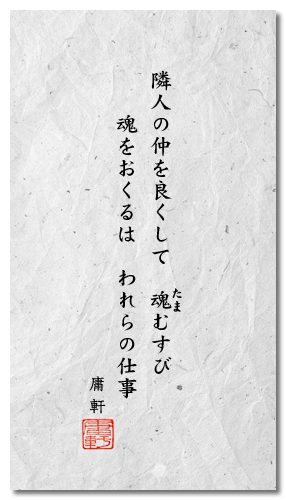 隣人の仲を良くして　魂むすび
たま
魂をおくるは　われらの仕事
庸軒
庸軒